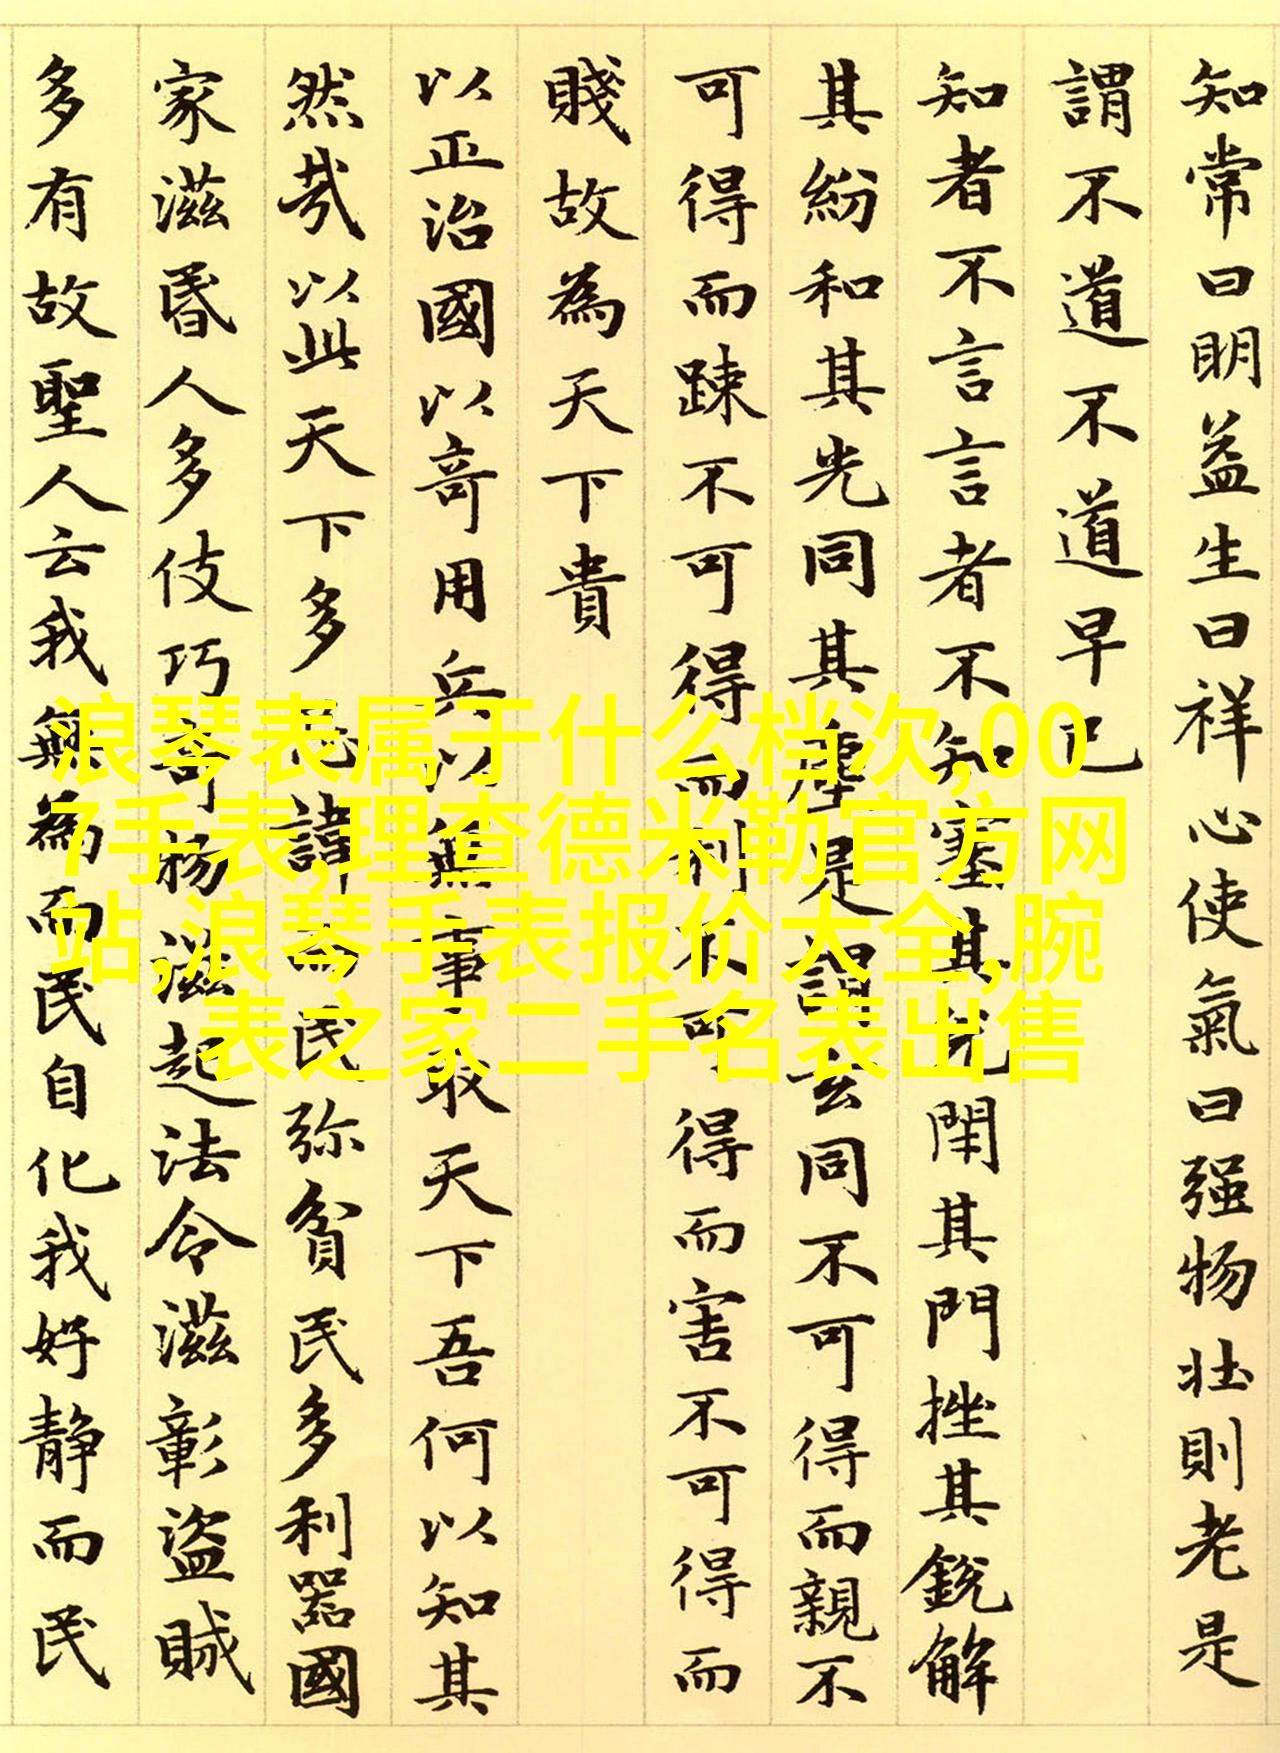 知常曰明益生曰祥心使氣曰强物壯則老是
謂不道不道早已
知者不言言者不知塞其兑閉其門挫其銳解
其紛和其光同其塵是謂玄同不可得而親不
可得而踈不可得而利不可得而害不可得而
賤故為天下貴
以正治國以奇用兵以無事取天下吾何以知其
然㢤以此天下多忌諱而民弥貧民多利器國
家滋昏人多伎巧奇物滋起法令滋彰盗賊
多有故聖人云我無為而民自化我好静而民
浪琴表属于什么档次,00
7手表,理查德米勒官方网
站,浪琴手表报价大全,腕
表之家二手名表出售